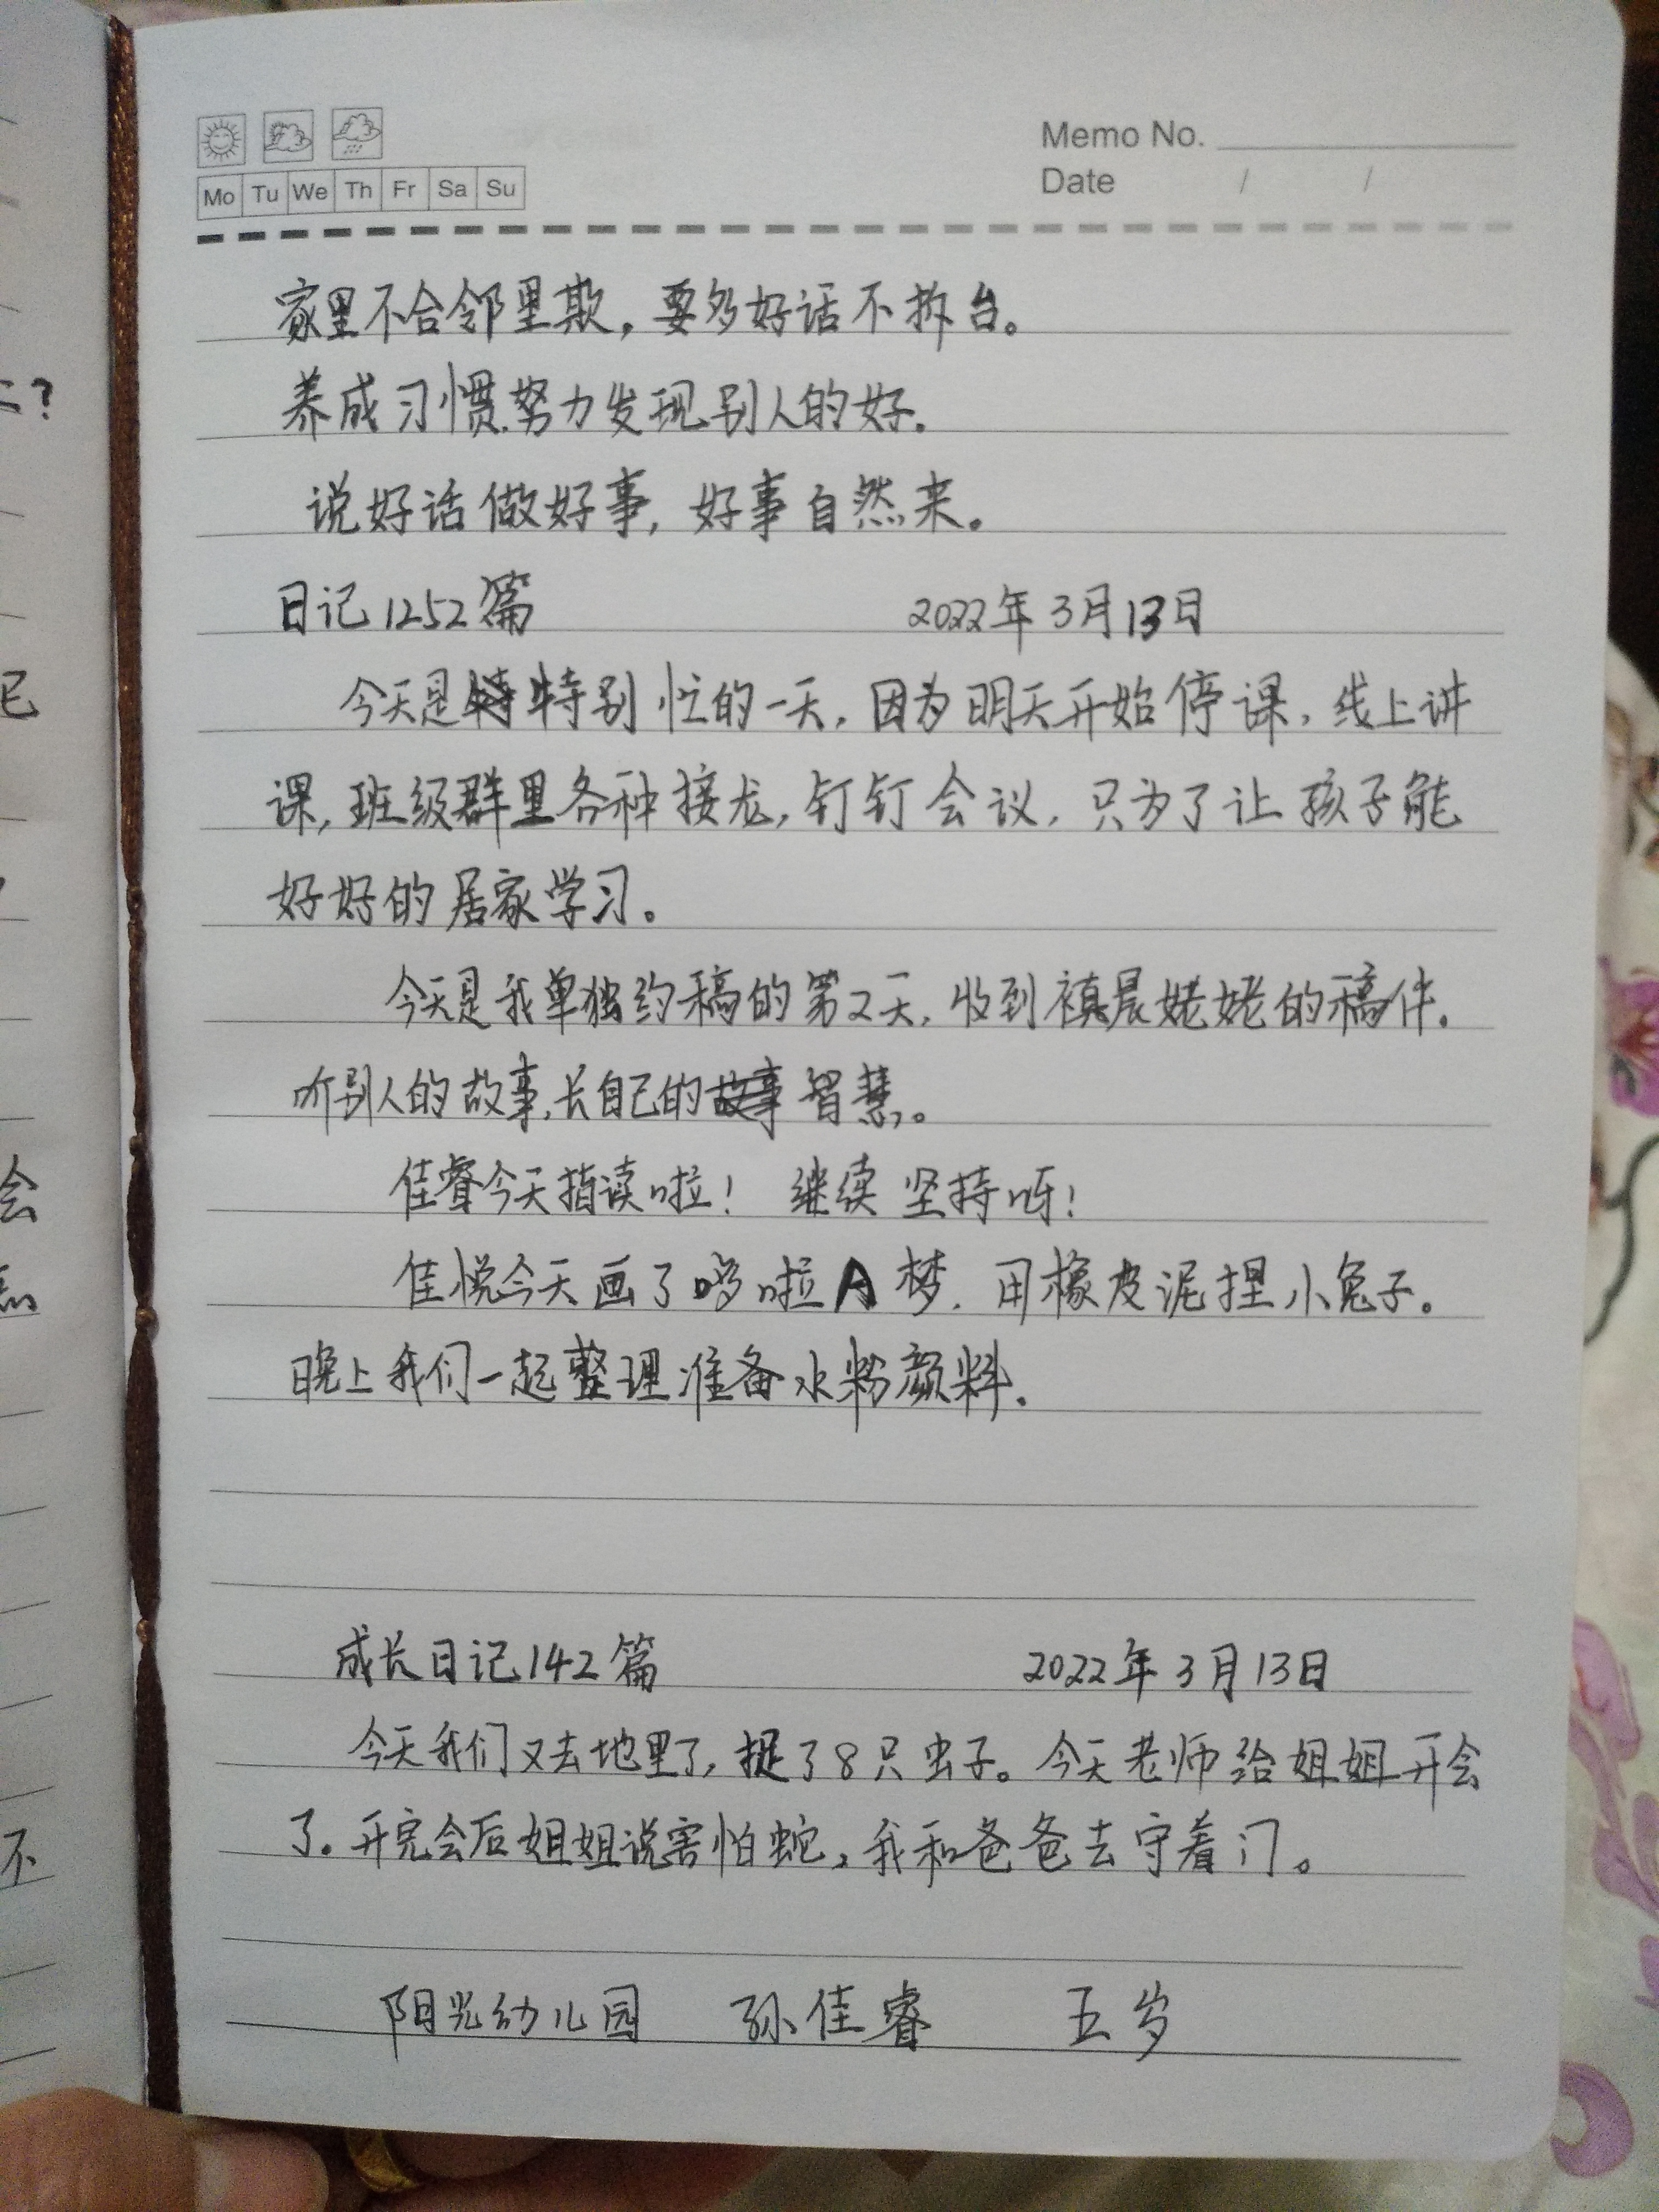 Memo No.
Mo Tu We Th Fr Sa Su
Date / /
家里不合邻里欺，要多好话不拆台。
养成习惯努力发现别人的好。
说好话做好事，好事自然来。
日记1252篇 2022年3月13日
今天是特别忙的一天，因为明天开始停课，线上讲
课，班级群里各种接龙，钉钉会议，只为了让孩子能
好好的居家学习。
今天是我单独约稿的第2天，收到禛晨姥姥的稿件。
听别人的故事，长自己的智慧。
佳睿今天指读啦！继续坚持呀！
佳悦今天画了哆啦A梦，用橡皮泥捏小兔子。
晚上我们一起整理准备水粉颜料。
成长日记142篇 2022年3月13日
今天我们又去地里了，捉了8只虫子。今天老师给姐姐开会
了。开完会后姐姐说害怕蛇，我和爸爸去守着门。
阳光幼儿园 孙佳睿 五岁
二？
记
会
不